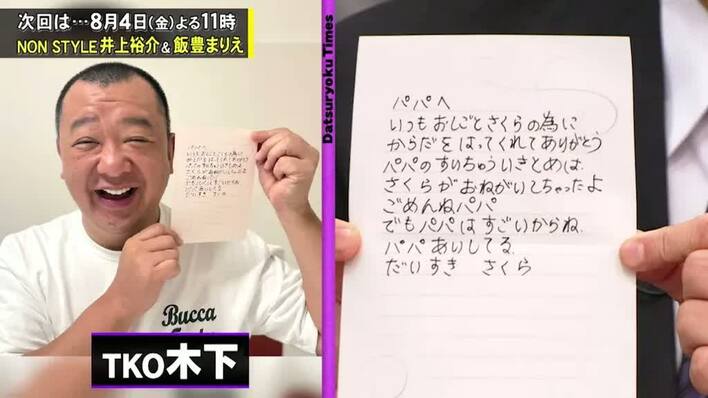 次回は…8月4日(金)よる11時
NON STYLE井上裕介&飯豊まりえ
Datsuryoku Times
パパへ
いつもおしごとさくらの為に
からだをはってくれてありがとう
パパのすいちゅういきとめは、
さくらがおねがいしちゃったよ
ごめんねパパ
でもパパはすごいからね。
パパあいしてる。
だいすき さくら
Bucca
TKO木下